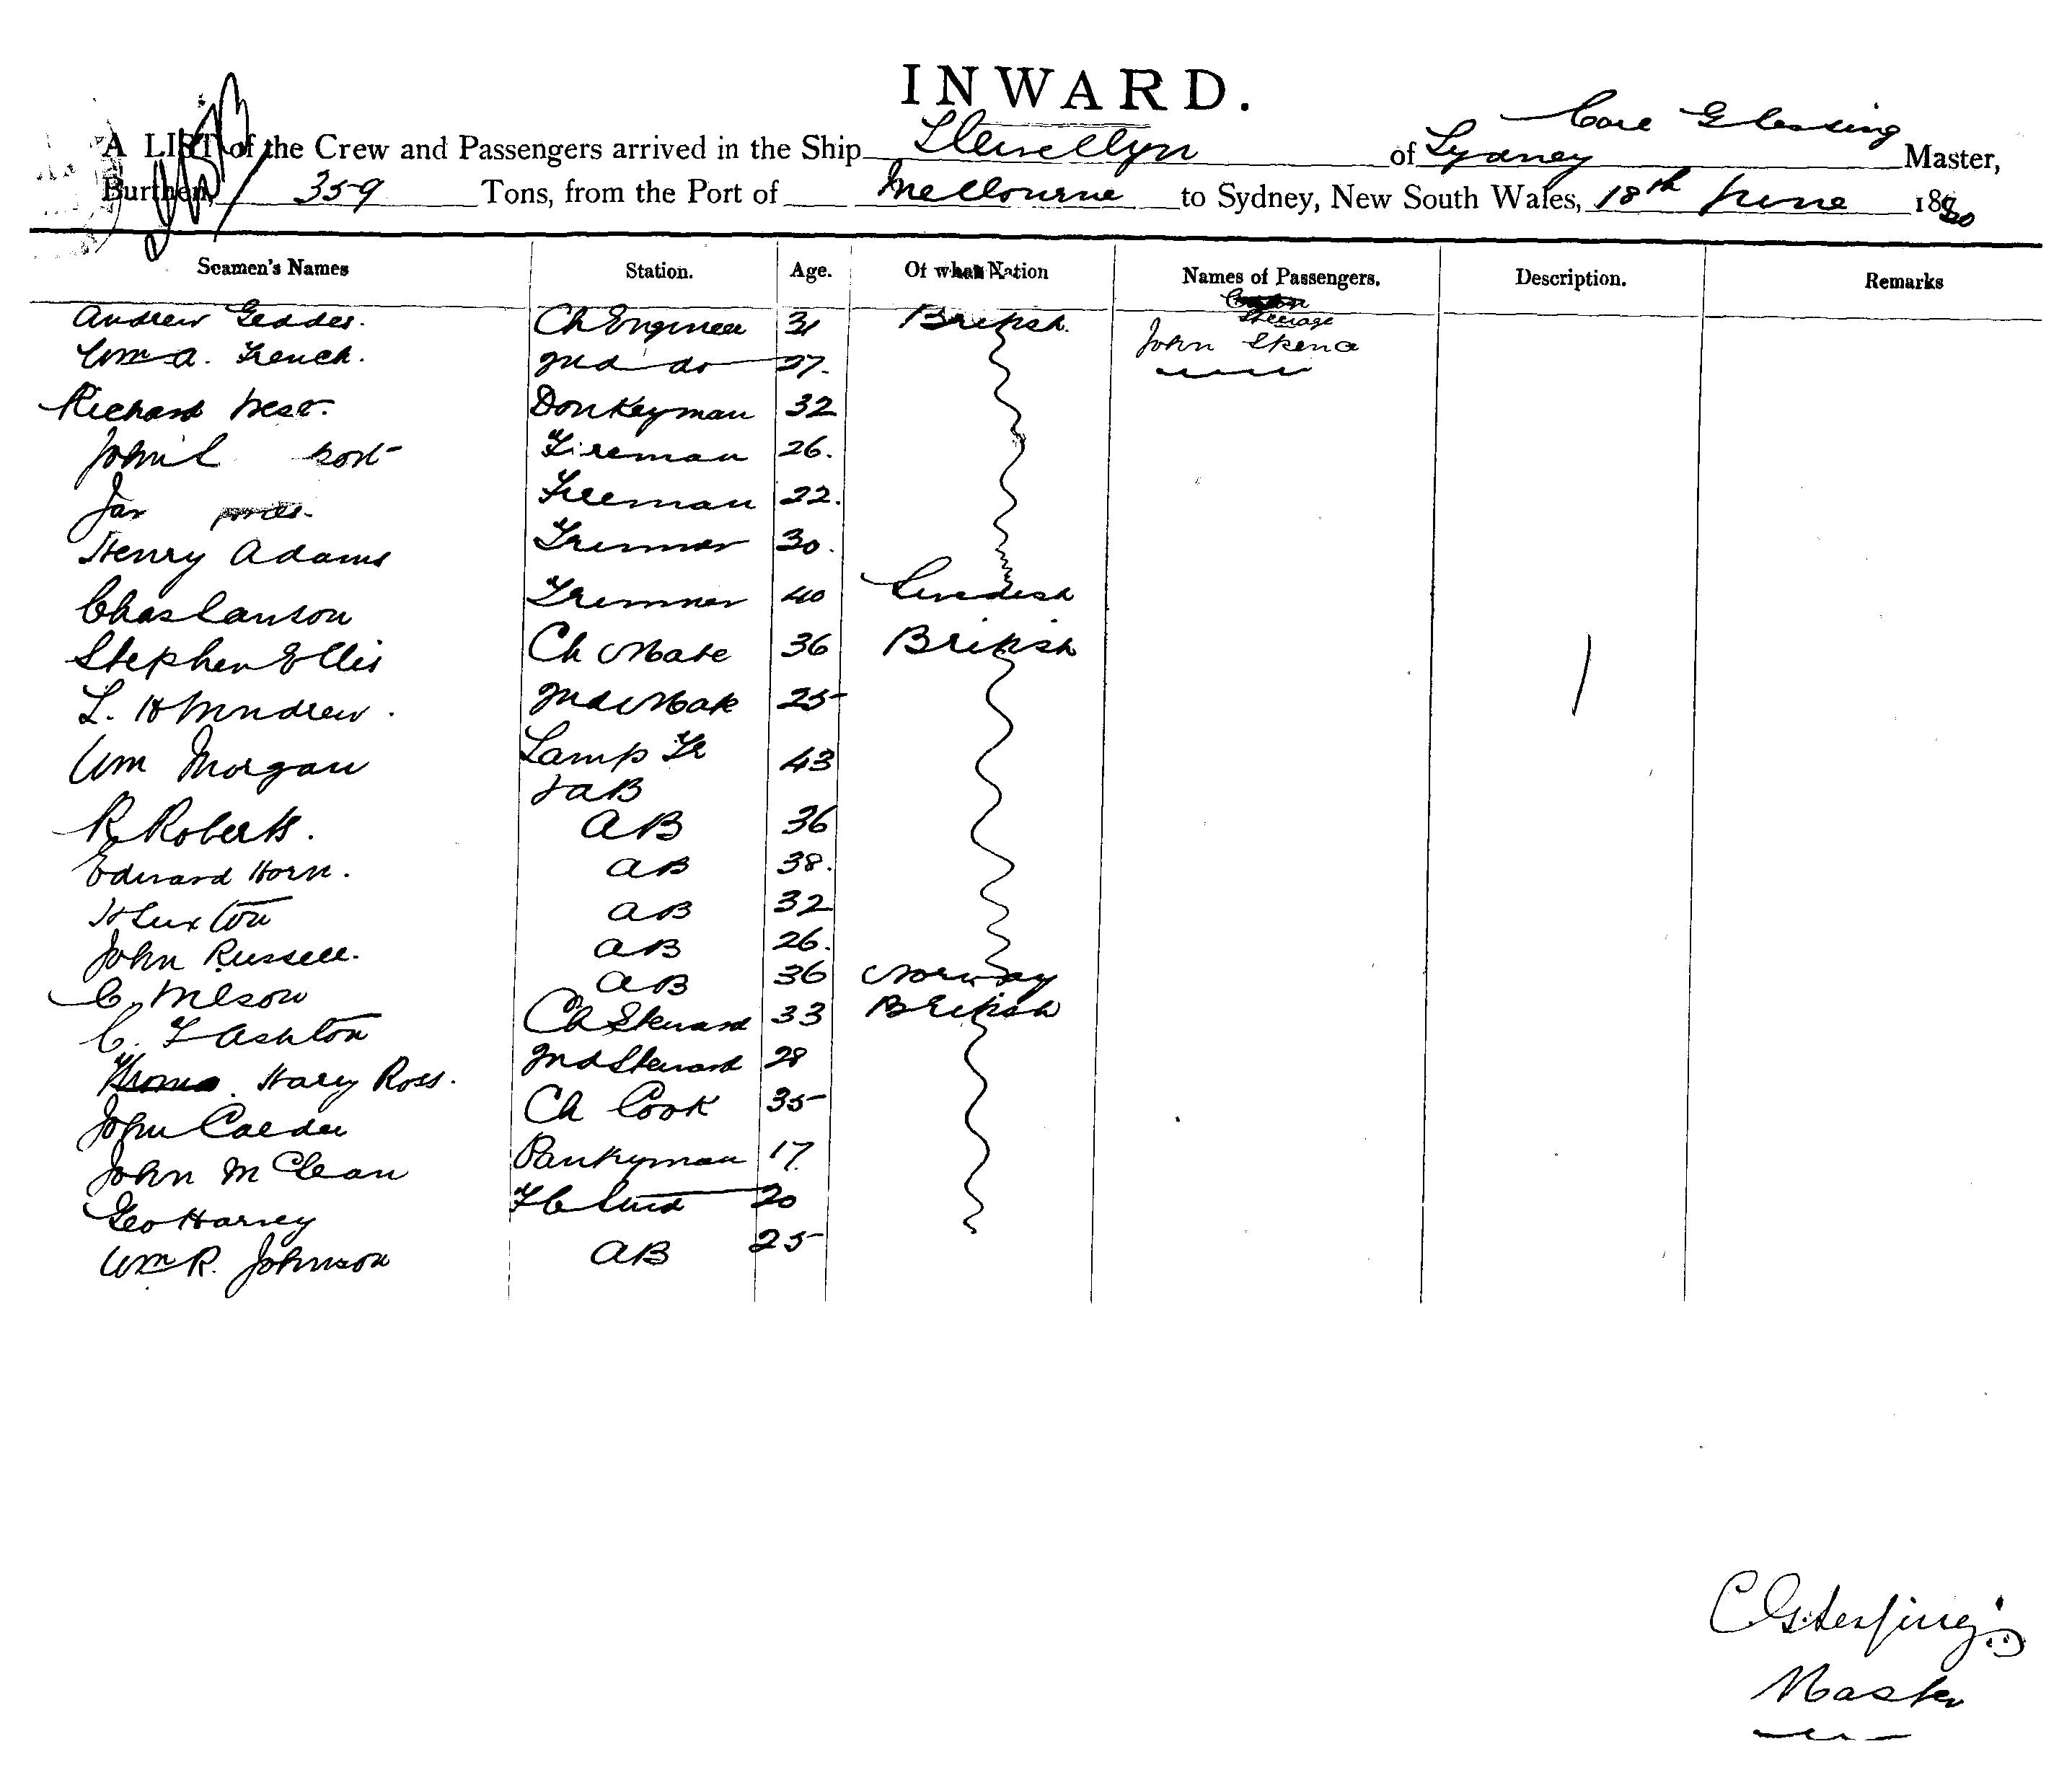 INWARD.
A LIST of the Crew and Passengers arrived in the Ship Llewellyn of Sydney Master,
Burthen, 359 Tons, from the Port of Melbourne to Sydney, New South Wales, 18th June 18
Seamen's Names Station. Age. Of what Nation Names of Passengers. Description. Remarks
Steerage
Andrew Geddes. Ch Engineer 31 British.
John
Wm A. French. 2nd do 27.
Richard West. Donkeyman 32
John Fireman 26.
Jas Fireman 22.
Henry Adams Trimmer 30.
Chas Lawson Trimmer 40 Swedish
Stephen Ellis Ch Mate 36 British
L. H 2nd Mate 25
Wm Morgan Lamp Tr 43
& AB
R Roberts. AB 36
Edward Horn. AB 38.
H Luxton AB 32
John Russell. AB 26.
C. Nilson AB 36 Norway
C. F Ashton Ch Steward 33 British
Harry Ross. 2nd Steward 28
John Calder Ch Cook 35
John McClean Pantryman 17
Geo Harvey 20
Wm R. Johnson AB 25
Master